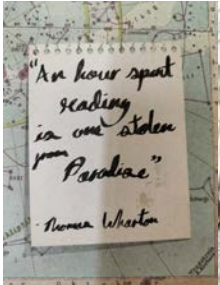 "An hour spent
reading
is one stolen
from
Paradise"
- Thomas Wharton